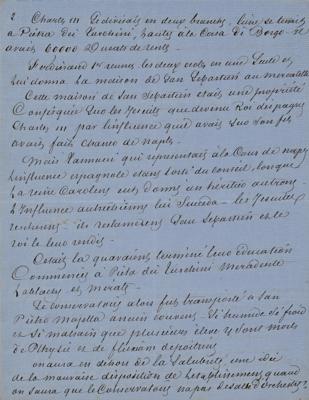 2
Charles III le divisait en deux branches, l'une se tenait
à Piétra dei Turchini, l'autre à la Casa di Borgo. Il
avait 60000 Ducats de rente.
Ferdinand 1er réunit les deux écoles en une Seule et
lui donna la maison de San Sebastien au mercatello
Cette maison de San Sebastien était une propriété
Confisquée sur les Jesuits que devenu Roi d'Espagne
Charles III par l'influence qu'il avait sur son fils
avait fait chasser de naples.
Mais Tannucci qui representait à la Cour de naples
l'influence espagnole étant sorti du conseil, lorsque
La reine Caroline eut donné un héritier au trône
L'Influence autrichienne lui Succéda - les Jesuites
revinrent - ils reclamèrent San Sebastien et le
roi le leur rendit.
C'était là qu'avaient terminé leur éducation
Commencée à Piéta dei Turchini Mercadante
Lablache et
Le Conservatoire alors fut transporté à San
Piétro Majella ancien couvent. Si humide Si froid
et Si malsain que plusieurs élèves y Sont morts
de Phtysie et de fluxion de poitrine
on aura en dehors de la Salubrité une idée
de la mauvaise disposition de l'etablissement quand
on saura que le Conservatoire n'a pas de salle d'Orchestre